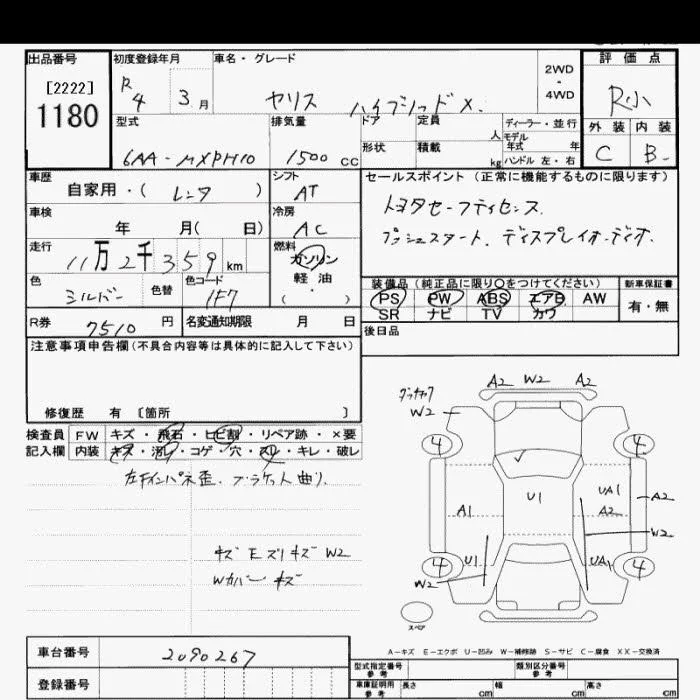 出品番号 初度登録年月 車名・グレード 評価点
[2222] 1180
R4 3月 ヤリス ハイブリッド X. 2WD・4WD R小
型式 排気量 ドア 定員 人 ディーラー・並行 外装 内装
6AA-MXPH10 1500cc 形状 積載 kg モデル年式 年 ハンドル 左・右 C B-
車歴 シフト セールスポイント(正常に機能するものに限ります)
自家用・( レンタ ) AT トヨタセーフティセンス.
車検 冷房
年 月( 日) AC プッシュスタート. ディスプレイオーディオ.
走行 燃料
11万2千359km ガソリン 軽油 ( ・ )
色 色替 色コード 装備品(純正品に限り○をつけてください) 新車保証書
シルバー 1F7 PS PW ABS エアB AW 有・無
SR ナビ TV カワ
R券 7510円 名変通知期限 月 日 後日品
注意事項申告欄(不具合内容等は具体的に記入して下さい)
修復歴 有 〔箇所 〕
検査員 FW キズ・飛石・ヒビ割・リペア跡・×要
記入欄 内装 キズ・汚レ・コゲ・穴・スレ・キレ・破レ
左Fインパネ歪. ブラケット曲り.
キズ E ズリキズ W2
Wカバー キズ
A2 W2 A2
W2
4 4
U1 UA1 A2
A1 A2
W2
U1 UA1
4 4
W2
スペア
A-キズ E-エクボ U-凹み W-補修跡 S-サビ C-腐食 XX-交換済
車台番号 2090267
型式指定番号 参考 類別区分番号 参考
登録番号 車庫証明用 参考 長さ cm 幅 cm 高さ cm